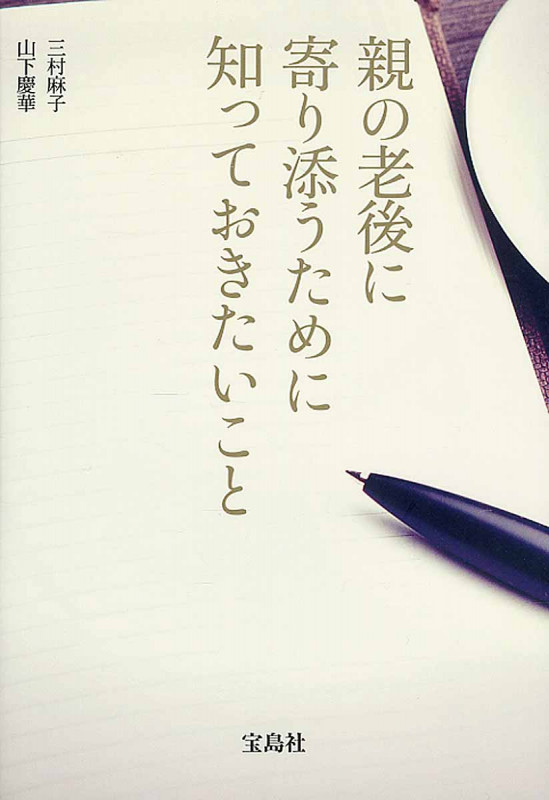 親の老後に
寄り添うために
知っておきたいこと
三村麻子
山下慶華
宝島社